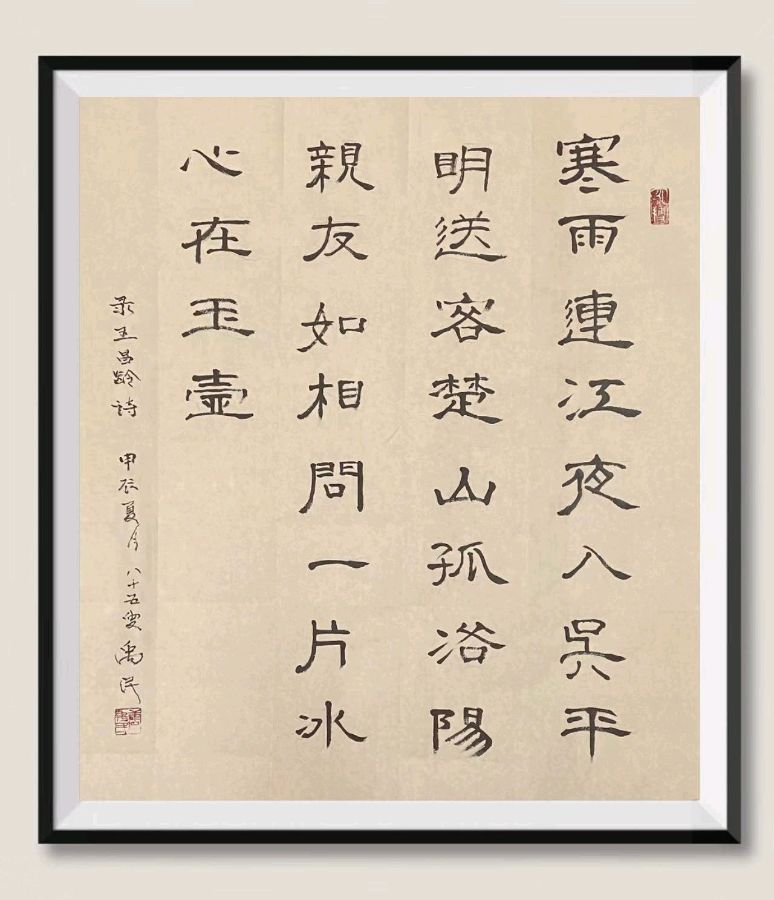 寒雨連江夜入吳平
明送客楚山孤洛陽
親友如相問一片冰
心在玉壺
录王昌龄詩 甲辰夏月 八十五叟禹民